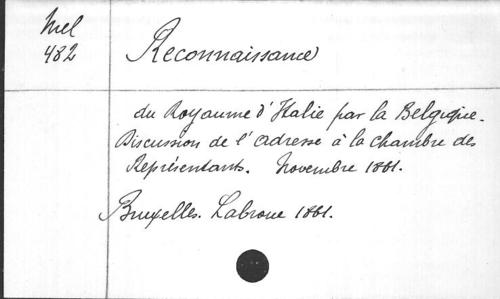 Mel
482
Reconnaissance
du Royaume d'Italie par la Belgique.
Discussion de l'adresse à la chambre des
Représentants. Novembre 1861.
Bruxelles. Labroue 1861.